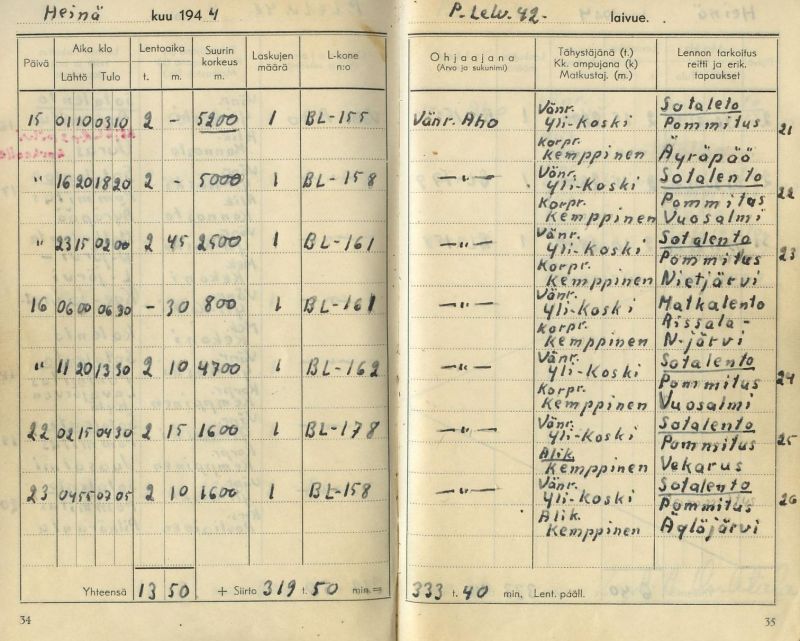 Heinä kuu 1944
P. Lelv. 42. laivue.
Päivä
Aika klo
Lähtö
Tulo
Lentoaika
t.
m.
Suurin korkeus m.
Laskujen määrä
L-kone n:o
Ohjaajana
(Arvo ja sukunimi)
Tähystäjänä (t.)
Kk. ampujana (k)
Matkustaj. (m.)
Lennon tarkoitus
reitti ja erik.
tapaukset
15 0110 0310 2 - 5200 1 BL-155 Vänr. Aho Vänr. Yli-Koski Sotaleto Pommitus 21
Korpr. Kemppinen Äyräpää
" 1620 1820 2 - 5000 1 BL-158 —"— Vänr. Yli-Koski Sotalento 22
Korpr. Kemppinen Pommitus Vuosalmi
" 2315 0200 2 45 2500 1 BL-161 —"— Vänr. Yli-Koski Sotalento Pommitus 23
Korpr. Kemppinen Nietjärvi
16 0600 0630 - 30 800 1 BL-161 —"— Vänr. Yli-Koski Matkalento
Korpr. Kemppinen Rissala - N-järvi
" 1120 1330 2 10 4700 1 BL-162 —"— Vänr. Yli-Koski Sotalento Pommitus 24
Korpr. Kemppinen Vuosalmi
22 0215 0430 2 15 1600 1 BL-178 —"— Vänr. Yli-Koski Sotalento Pommitus 25
Alik. Kemppinen Vekarus
23 0455 0705 2 10 1600 1 BL-158 —"— Vänr. Yli-Koski Sotalento Pommitus 26
Alik. Kemppinen Äglöjärvi
Yhteensä 13 50 + Siirto 319 t. 50 min. = 333 t. 40 min. Lent. pääll.
34
35